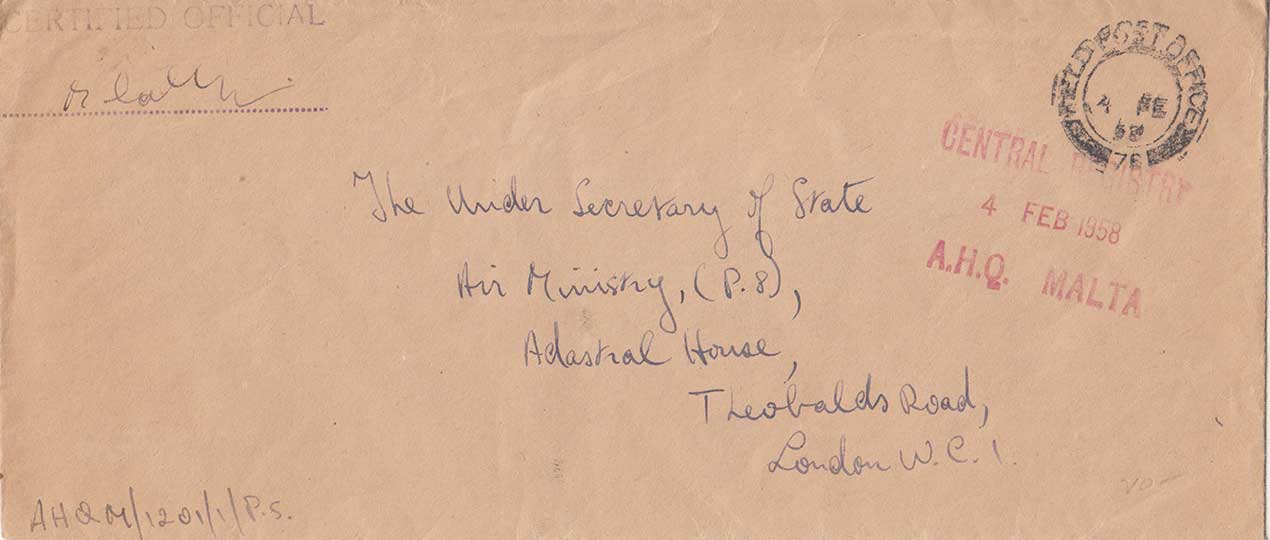 CERTIFIED OFFICIAL
FIELD POST OFFICE
4 FE
58
CENTRAL REGISTRY
4 FEB 1958
A.H.Q. MALTA
The Under Secretary of State
Air Ministry, (P.8),
Adastral House,
Theobalds Road,
London W.C.1.
AHQM/1201/1/P.S.